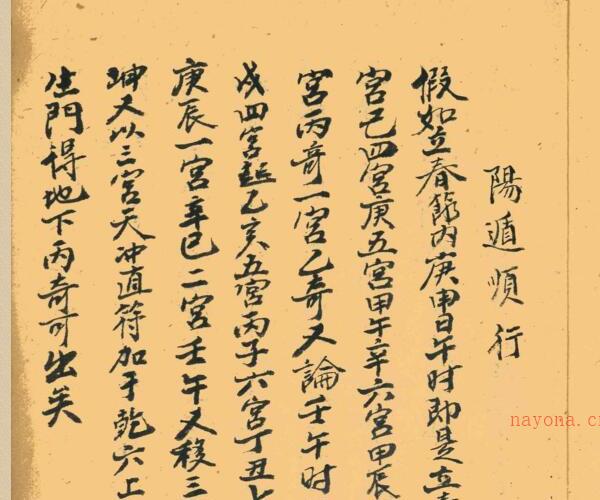 陽遁順行
假如立春節内庚申日午时即是立春
宮己四宮庚五宮甲午辛六宮甲辰
宮丙奇一宮乙奇又論壬午时
戊四宮起乙亥五宮丙子六宮丁丑七
庚辰一宮辛巳二宮壬午又移三
坤又以三宮天冲直符加于乾六上
生門得地下丙奇可出矣
nayona.c